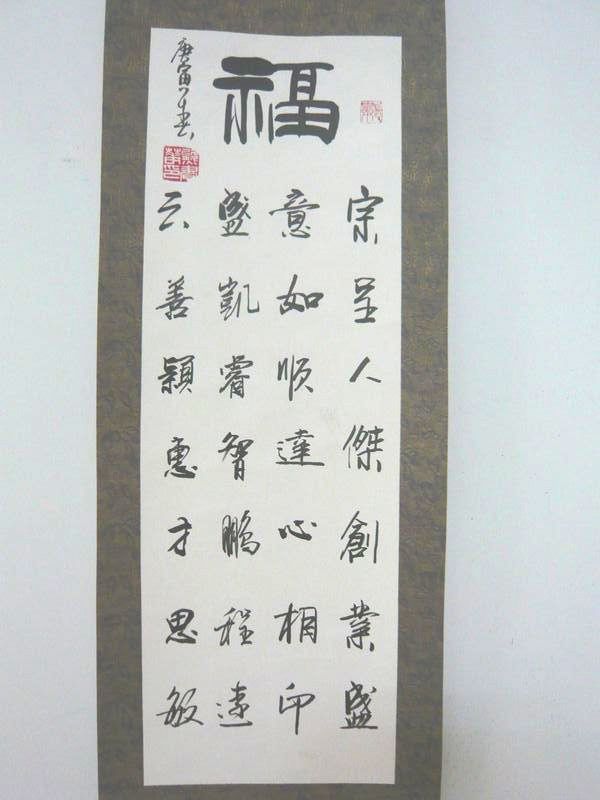 福
宗呈人傑創業盛
意如順達心相印
盛凱睿智鵬程遠
云善穎惠才思敏
庚寅年春